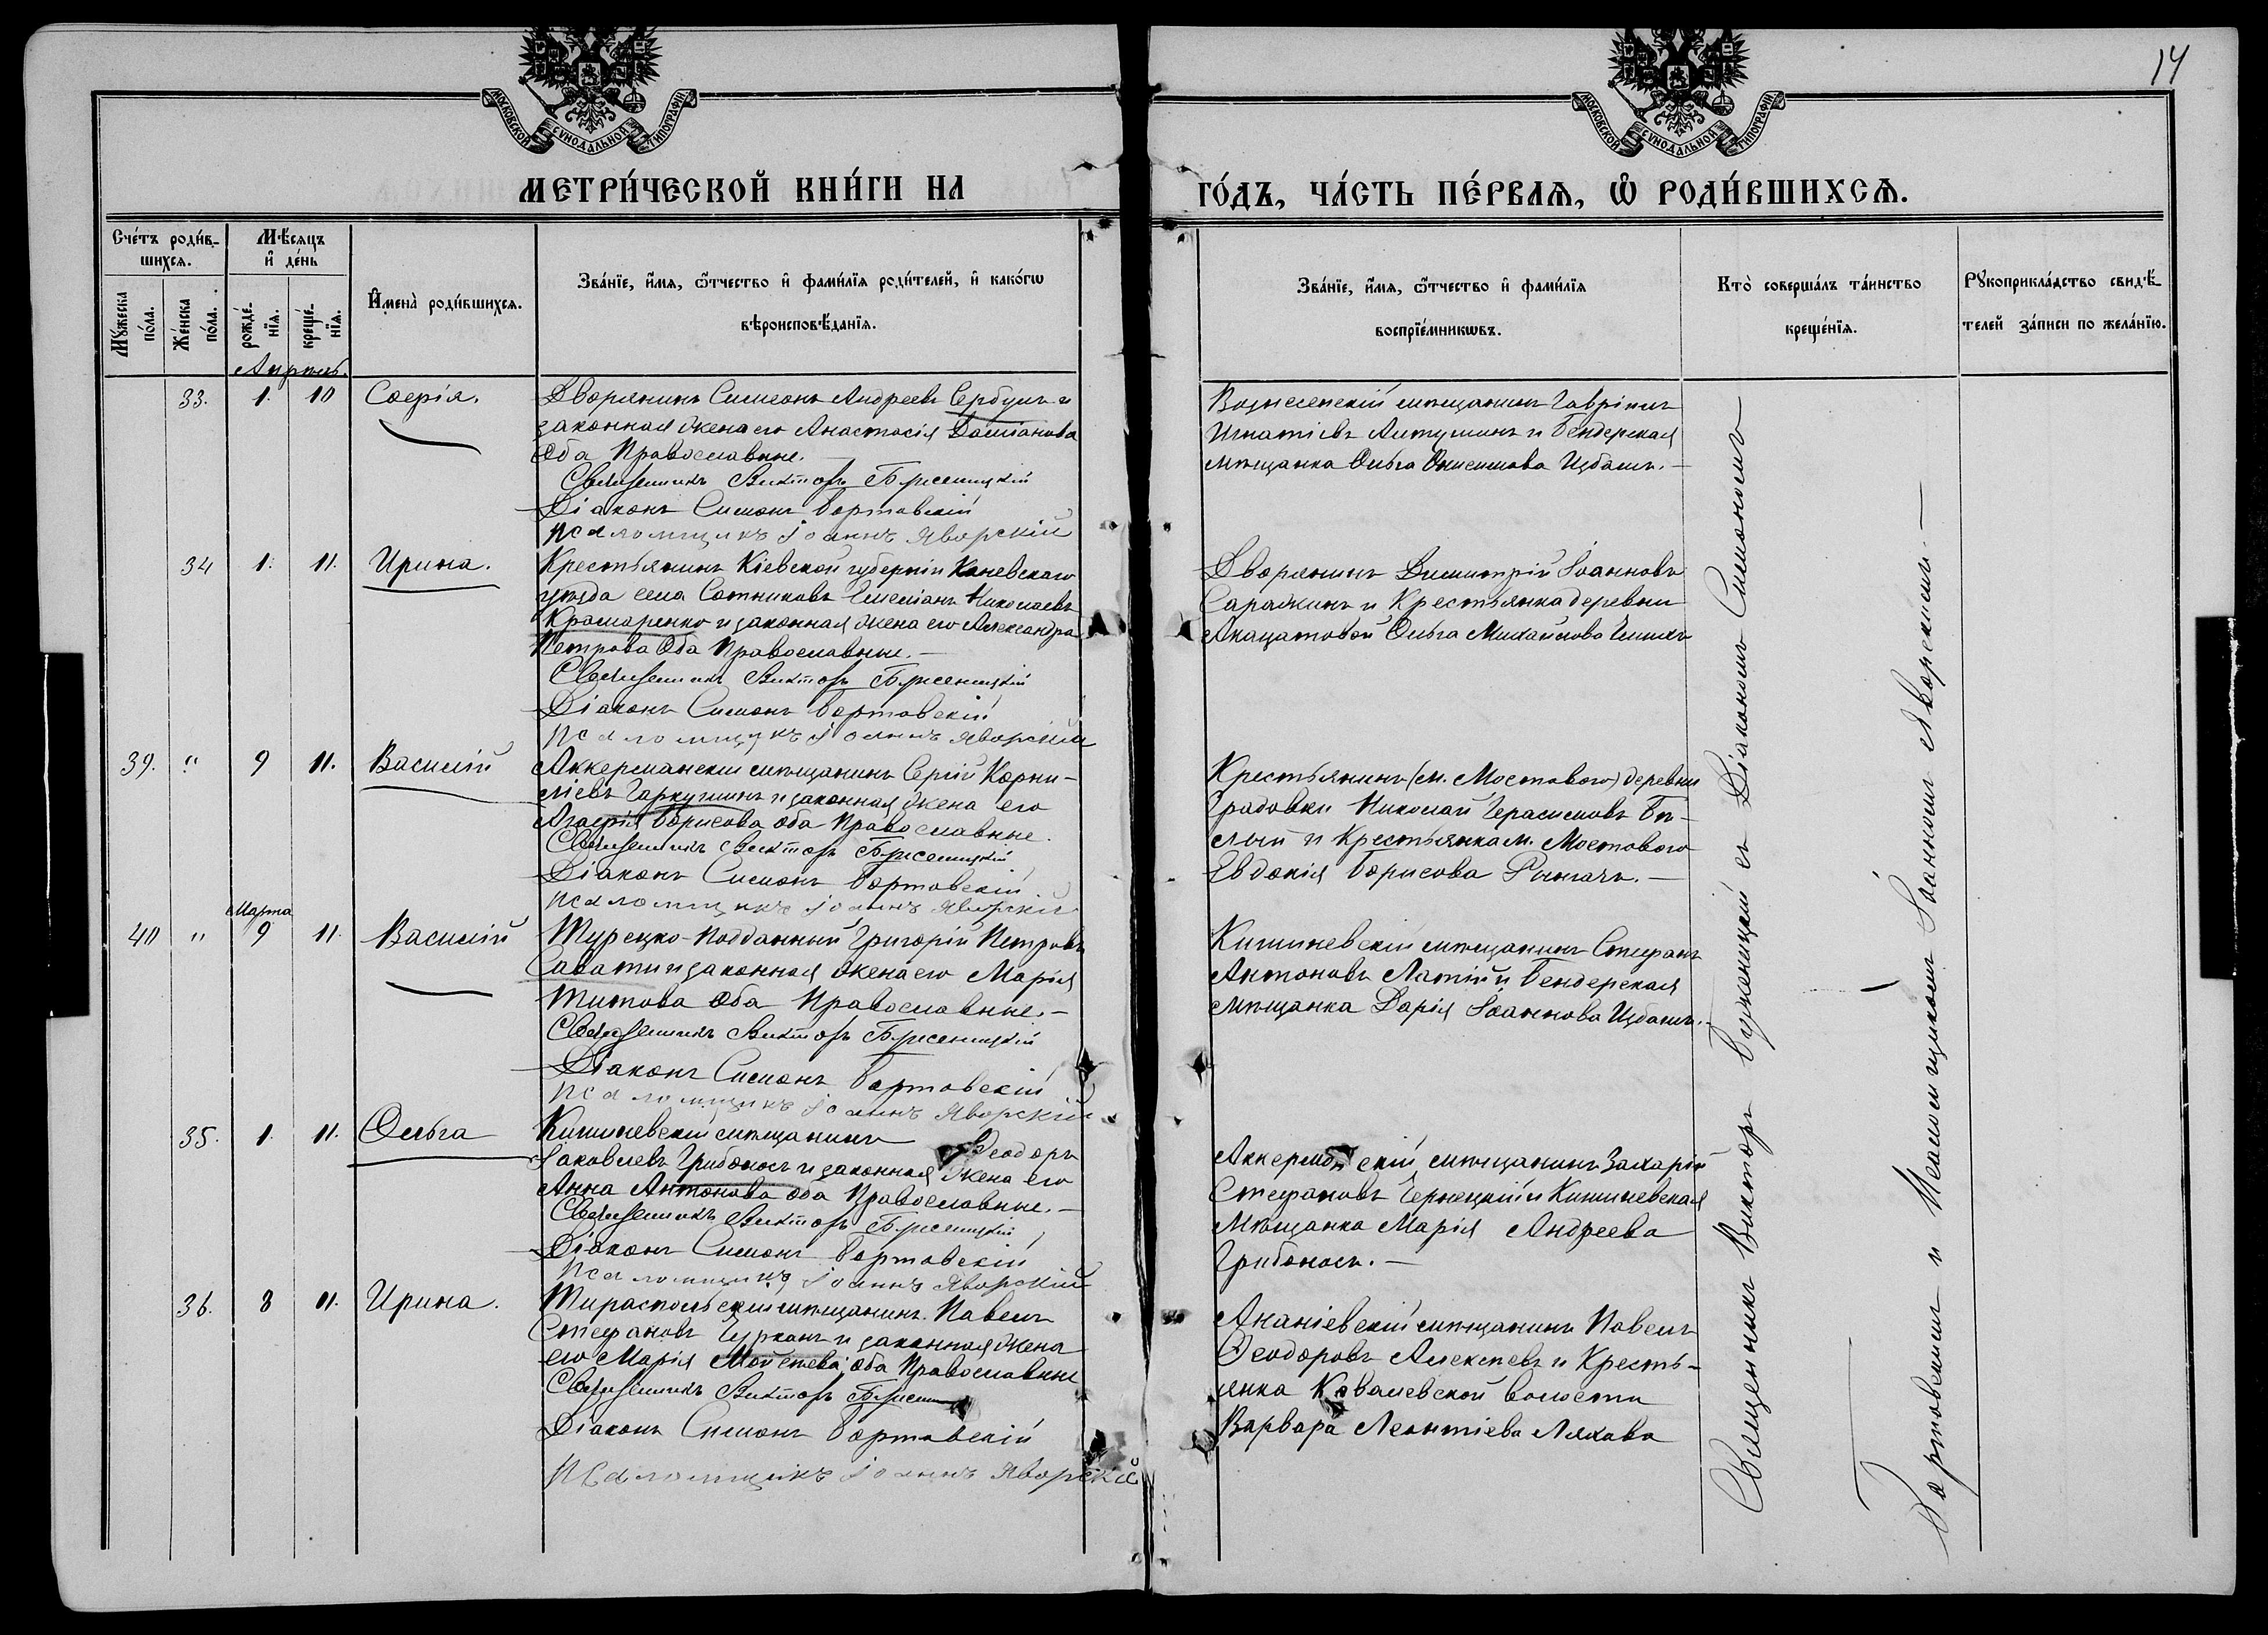 14
МОСКОВСКОЙ СУНОДАЛЬНОЙ ТИПОГРАФІИ
МОСКОВСКОЙ СУНОДАЛЬНОЙ ТИПОГРАФІИ
МЕТРИ́ЧЕСКОЙ КНИ́ГИ НА
ГО́ДЪ, ЧА́СТЬ ПЕ́РВАѦ, Ѡ҆ РОДИ́ВШИХСѦ.
Сче́тъ роди́в-
шихсѧ.
Мꙋ́жеска по́ла.
Же́нска по́ла.
Мѣ́сѧцъ
и҆ де́нь
рожде́-
нїѧ.
креще́-
нїѧ.
И҆мена̀ роди́вшихсѧ.
Зва́нїе, и҆́мѧ, ѻ҆́тчество и҆ фами́лїѧ роди́телей, и҆ како́гѡ
вѣроисповѣ́данїѧ.
Зва́нїе, и҆́мѧ, ѻ҆́тчество и҆ фами́лїѧ
воспрїе́мникѡвъ.
Кто̀ соверша́лъ та́инство
креще́нїѧ.
Рꙋкоприкла́дство свидѣ́-
телей за́писи по жела́нїю.
Апрѣль.
33. 1. 10 Софія.
Дворянинъ Симеонъ Андреевъ Сербулъ и
законная жена его Анастасія Даміанова
Оба Православные.
Священникъ Викторъ Буженицкій
Діаконъ Симеонъ Бортовскій
Псаломщикъ Іоаннъ Яворскій
Вознесенскій мѣщанинъ Гавріилъ
Игнатіевъ Алтулинъ и Бендерская
мѣщанка Ольга Онисимова Избашъ.
34 1. 11. Ирина.
Крестьянинъ Кіевской губерніи Каневскаго
уѣзда села Сотниковъ Емеліанъ Николаевъ
Крамаренко и законная жена его Александра
Петрова Оба Православные.
Священникъ Викторъ Буженицкій
Діаконъ Симеонъ Бортовскій
Псаломщикъ Іоаннъ Яворскій
Дворянинъ Димитрій Іоанновъ
Саражинъ и Крестьянка деревни
Акацатовой Ольга Михайлова
39. " 9 11. Василій
Аккерманскій мѣщанинъ Сергій Корни-
ліевъ Гаркушинъ и законная жена его
Агафія Борисова Оба Православные.
Священникъ Викторъ Буженицкій
Діаконъ Симеонъ Бортовскій
Псаломщикъ Іоаннъ Яворскій
Крестьянинъ (м. Мостового) деревни
Градовки Николай Герасимовъ Бѣ-
лый и Крестьянка м. Мостового
Евдокія Борисова
Марта
40 " 9 11. Василій
Турецко-Подданный Григорій Петровъ
Савати и законная жена его Марія
Титова Оба Православные.
Священникъ Викторъ Буженицкій
Діаконъ Симеонъ Бортовскій
Псаломщикъ Іоаннъ Яворскій
Кишиневскій мѣщанинъ Стефанъ
Антоновъ Латій и Бендерская
мѣщанка Дарія Іоаннова Избашъ.
35. 1. 11. Ольга
Кишиневскій мѣщанинъ Ѳеодоръ
Іаковлевъ Грибоносъ и законная жена его
Анна Антонова Оба Православные.
Священникъ Викторъ Буженицкій
Діаконъ Симеонъ Бортовскій
Псаломщикъ Іоаннъ Яворскій
Аккерманскій мѣщанинъ Захарій
Стефановъ Чернецкій и Кишиневская
Мѣщанка Марія Андреева
Грибоносъ.
36. 8 11. Ирина.
Тираспольскій мѣщанинъ Павелъ
Стефановъ Цурканъ и законная жена
его Марія Моисеева, Оба Православные
Священникъ Викторъ
Діаконъ Симеонъ Бортовскій
Псаломщикъ Іоаннъ Яворскій
Ананіевскій мѣщанинъ Павелъ
Ѳеодоровъ Алексѣевъ и Кресть-
янка Ковалевской волости
Варвара Леонтіева Ляхова
Священникъ Викторъ Буженицкій съ Діакономъ Симеономъ
Бортовскимъ и Псаломщикомъ Іоанномъ Яворскимъ.